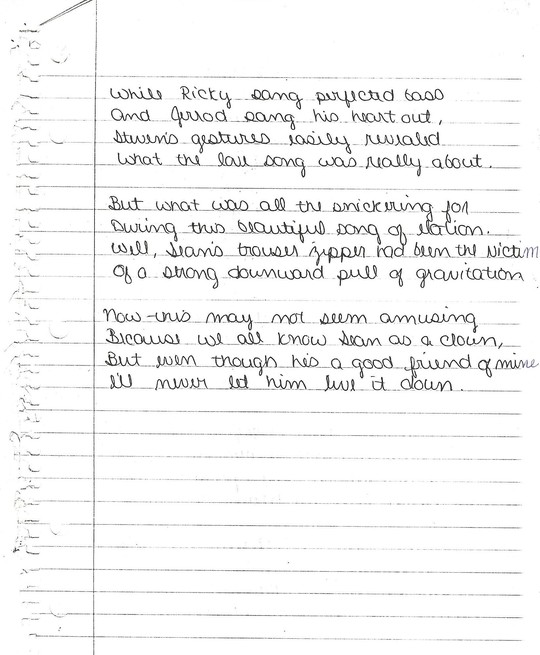 While Ricky sang perfected bass
And Jerrod sang his heart out,
Steven's gestures easily revealed
What the love song was really about.
But what was all the snickering for
During this beautiful song of elation.
Well, Sean's trouser zipper had been the victim
Of a strong downward pull of gravitation
Now this may not seem amusing
Because we all know Sean as a clown,
But even though he's a good friend of mine
I'll never let him live it down.